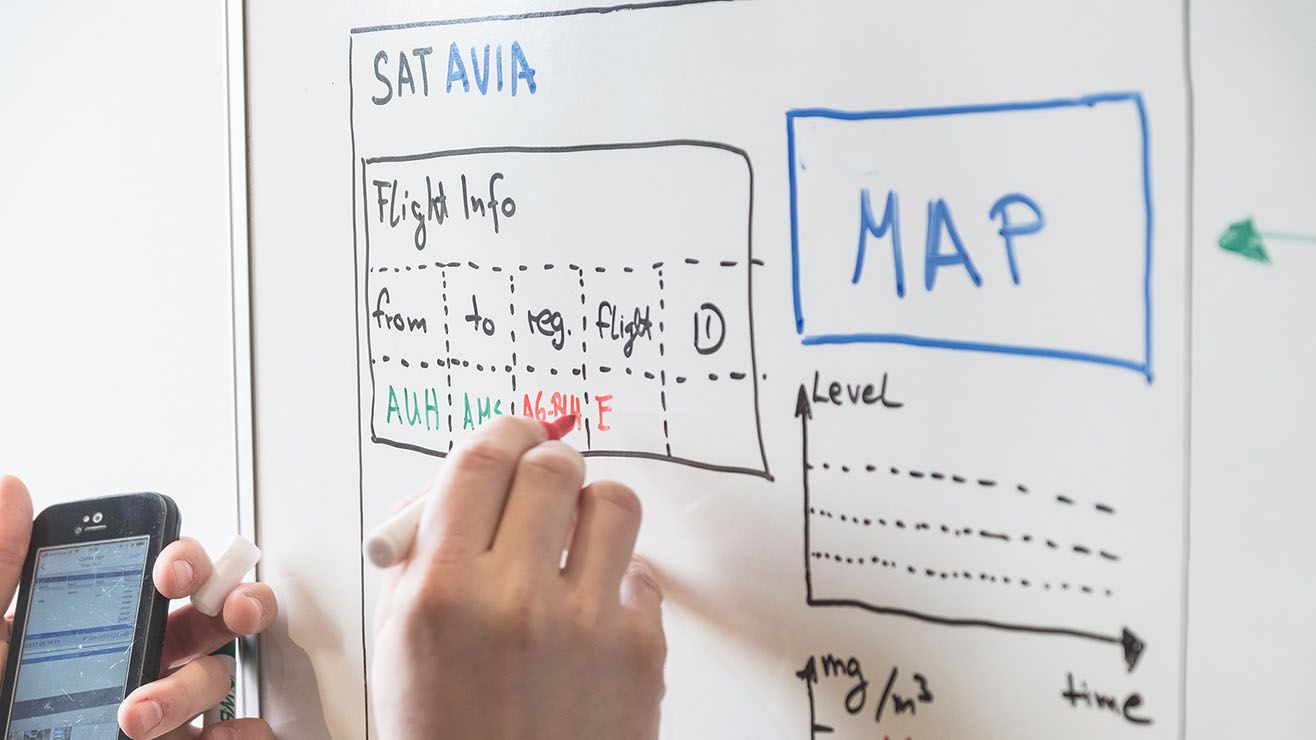 SATAVIA
Flight Info
from to reg. flight
AUH AMS E
MAP
Level
time
mg/m³